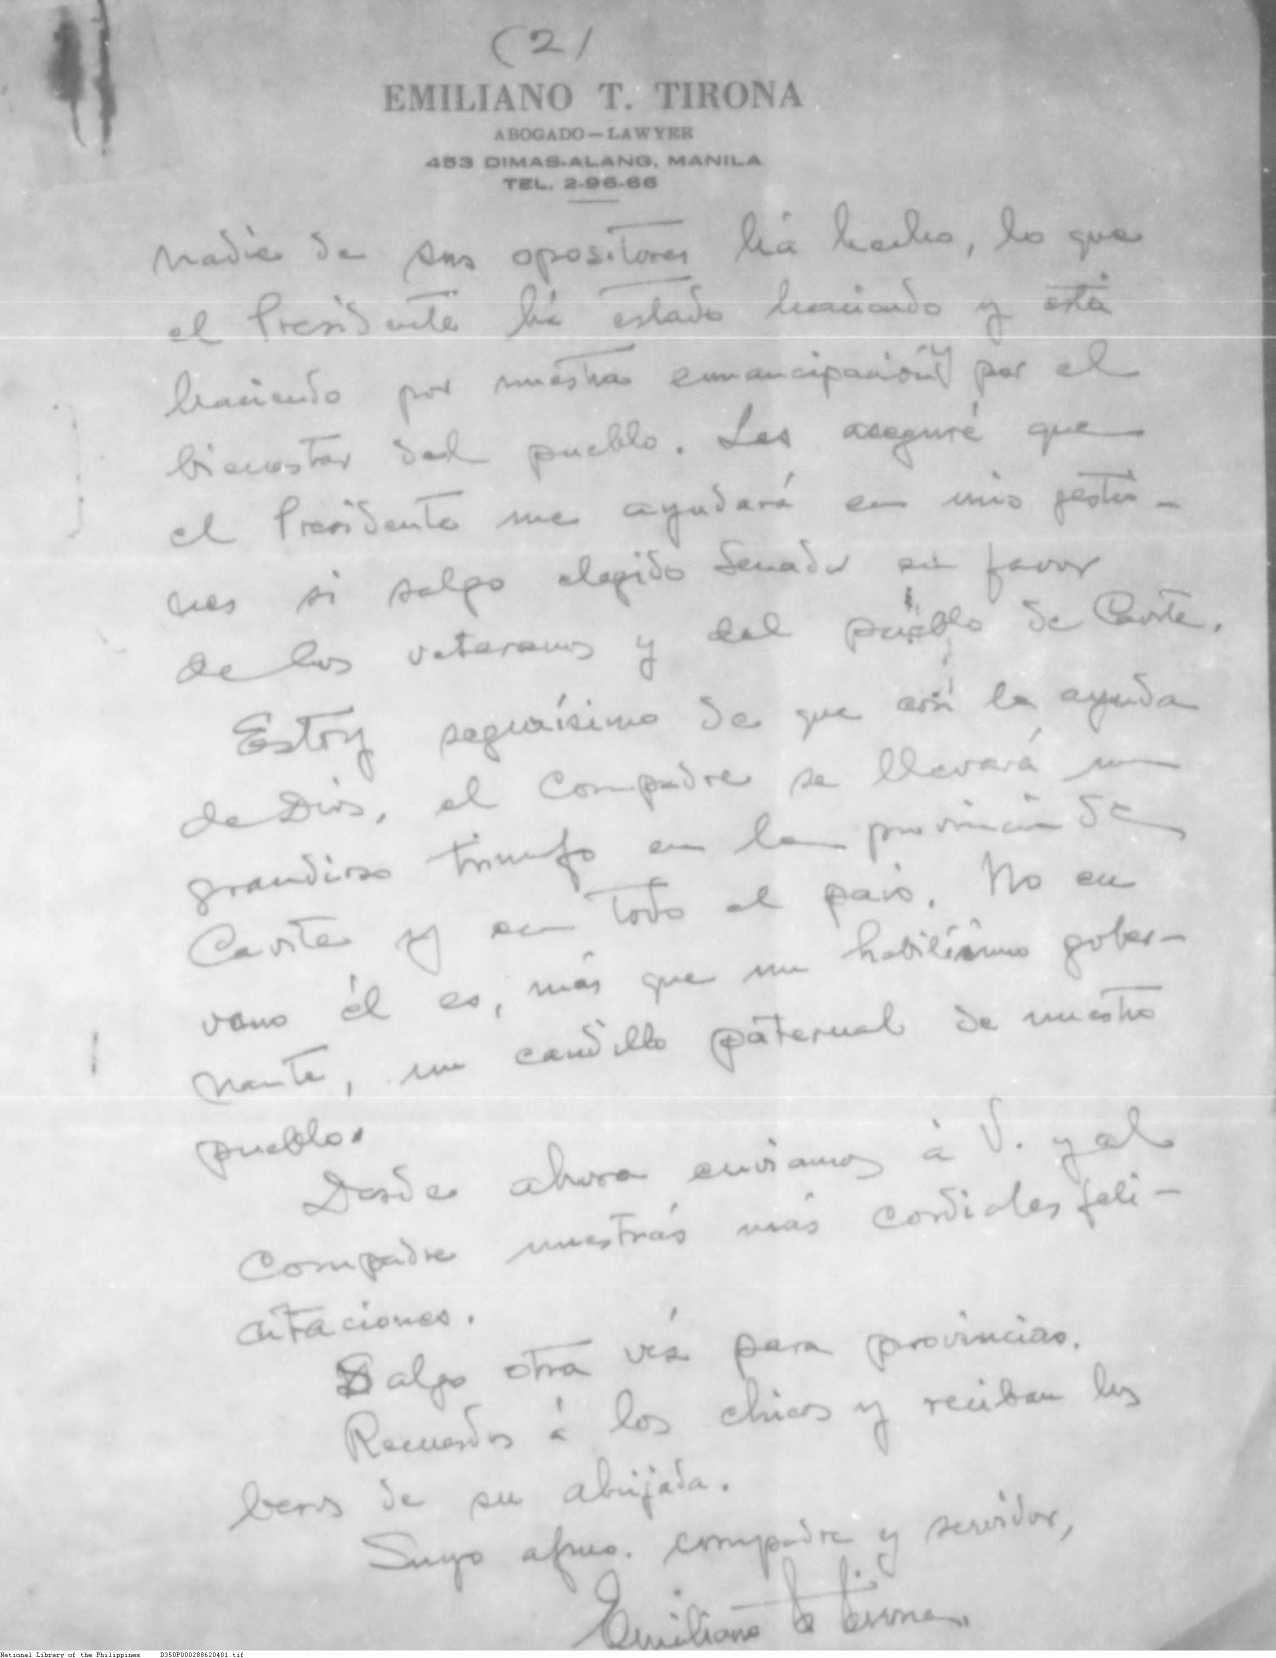 (2)
EMILIANO T. TIRONA
ABOGADO—LAWYER
453 DIMAS-ALANG, MANILA
TEL. 2-96-66
nadie de sus opositores há hecho, lo que
el Presidente há estado haciendo y está
haciendo por nuestra emancipación y por el
bienestar del pueblo. Les aseguré que
el Presidente me ayudará en mis gestio-
nes si salgo elegido Senador en favor
de los veteranos y del pueblo de Cavite.
Estoy segurísimo de que con la ayuda
de Dios, el Compadre se llevará un
grandioso triunfo en la provincia de
Cavite y en todo el pais. No en
vano él es, más que un habilísimo gober-
nante, un caudillo paternal de nuestro
pueblo.
Desde ahora enviamos á V. y al
Compadre nuestrás más cordiales feli-
citaciones.
Salgo otra vés para provincias.
Recuerdos á los chicos y reciban los
besos de su ahijada.
Suyo afmo. compadre y servidor,
Emiliano T. Tirona
National Library of the Philippines D350P000288620401.tif